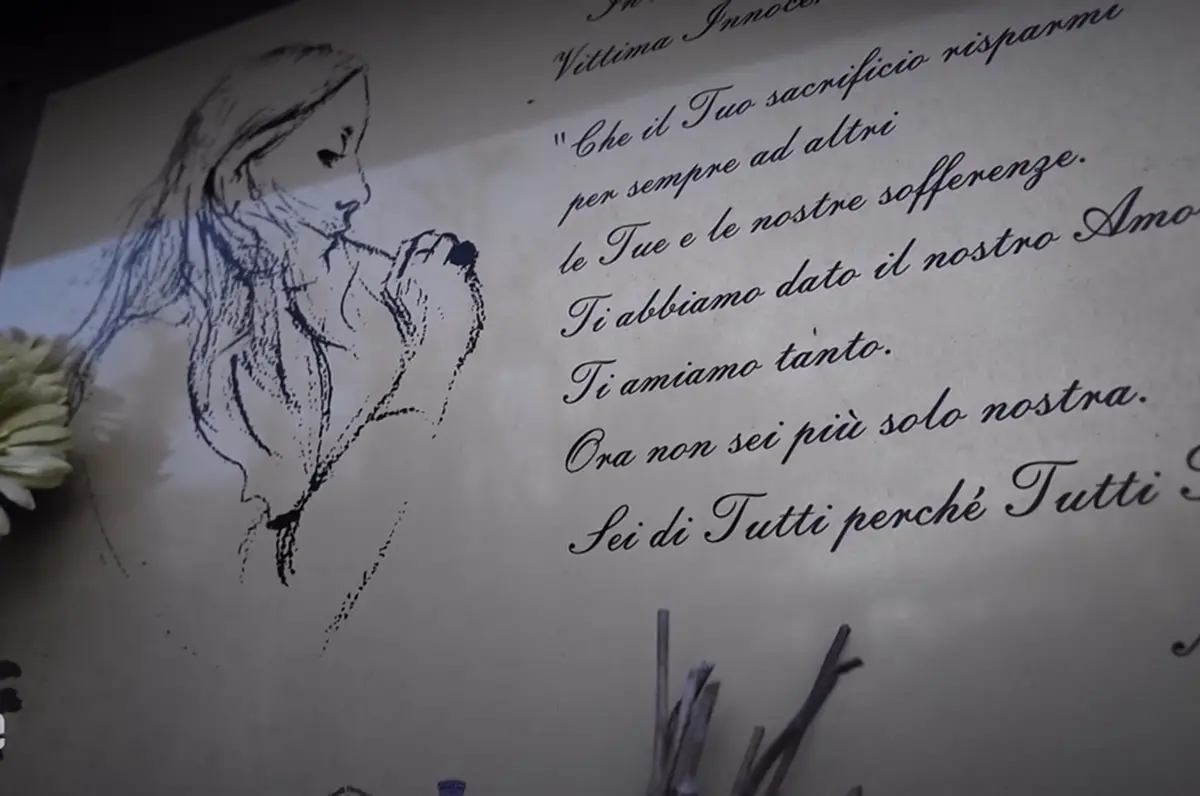 Vittima
"Che il Tuo sacrificio risparmi
per sempre ad altri
le Tue e le nostre sofferenze.
Ti abbiamo dato il nostro
Ti amiamo tanto.
Ora non sei più solo nostra.
Sei di Tutti perché Tutti